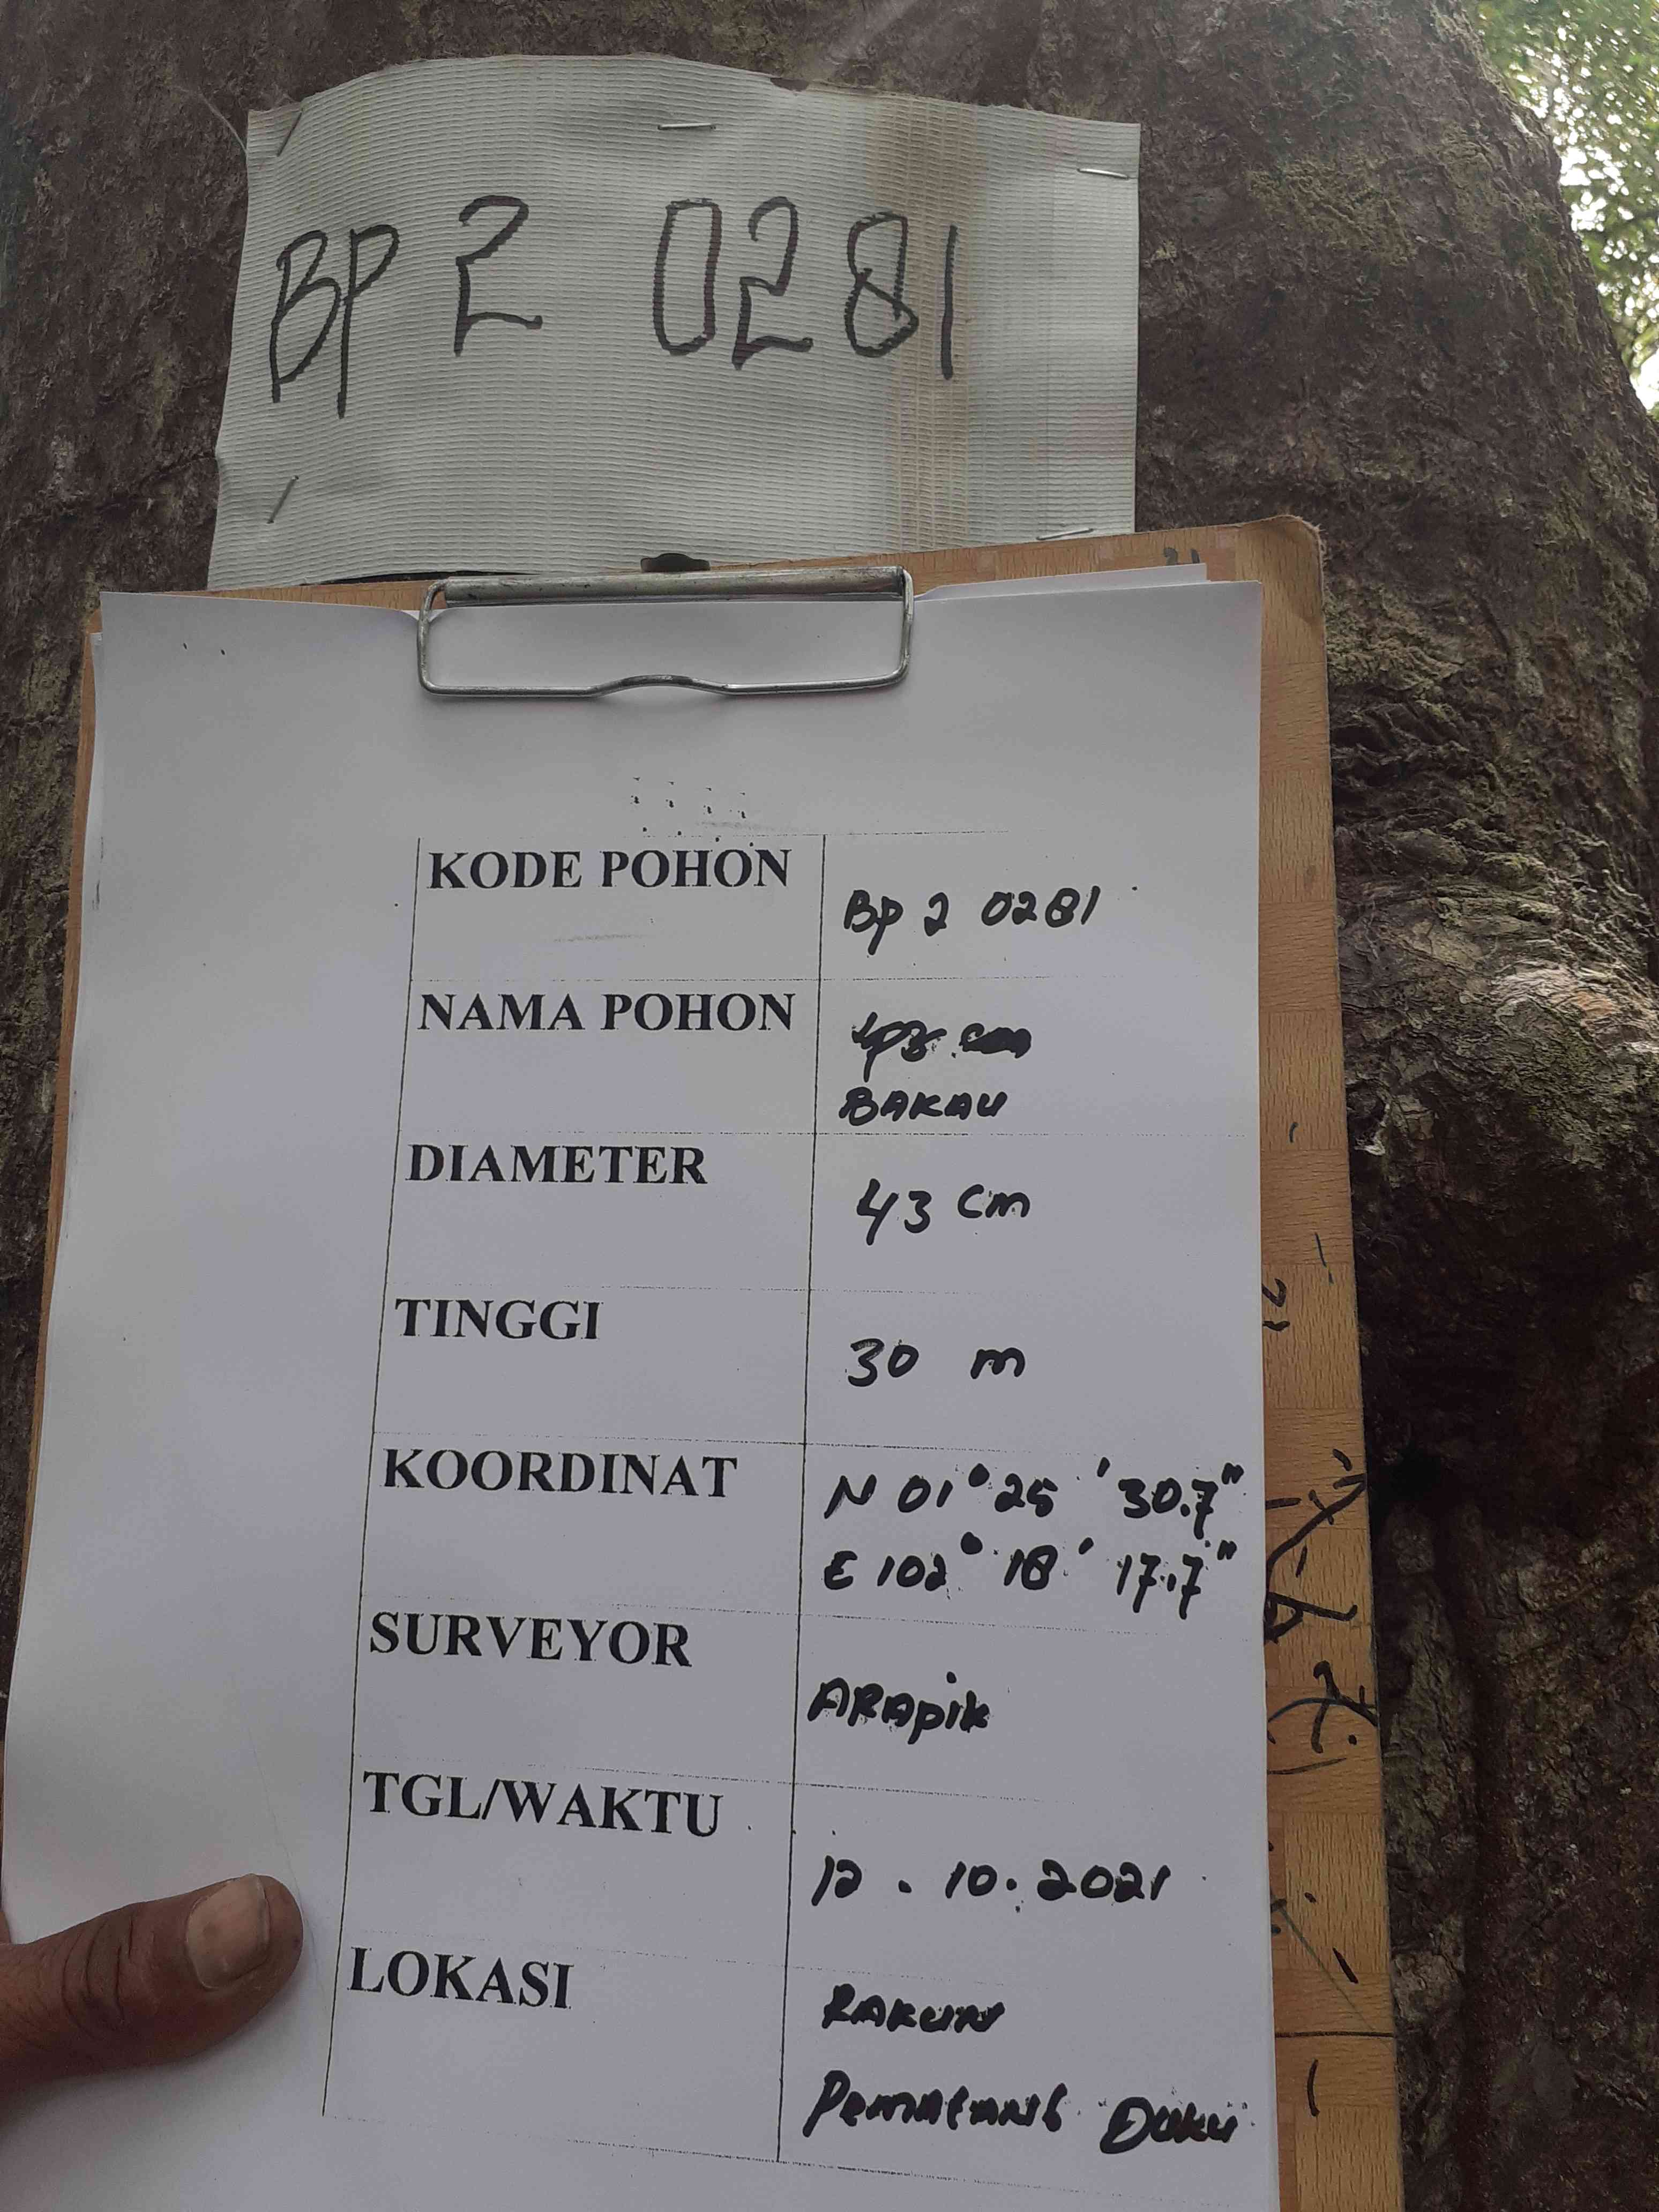 BP 2 0281
KODE POHON
Bp 2 0281
NAMA POHON
BAKAU
DIAMETER
43 cm
TINGGI
30 m
KOORDINAT
N 01° 25 ' 30.7"
E 102° 18' 17.7"
SURVEYOR
ARApik
TGL/WAKTU
12 . 10. 2021
LOKASI
RAKUN
PemAtANG DUKU